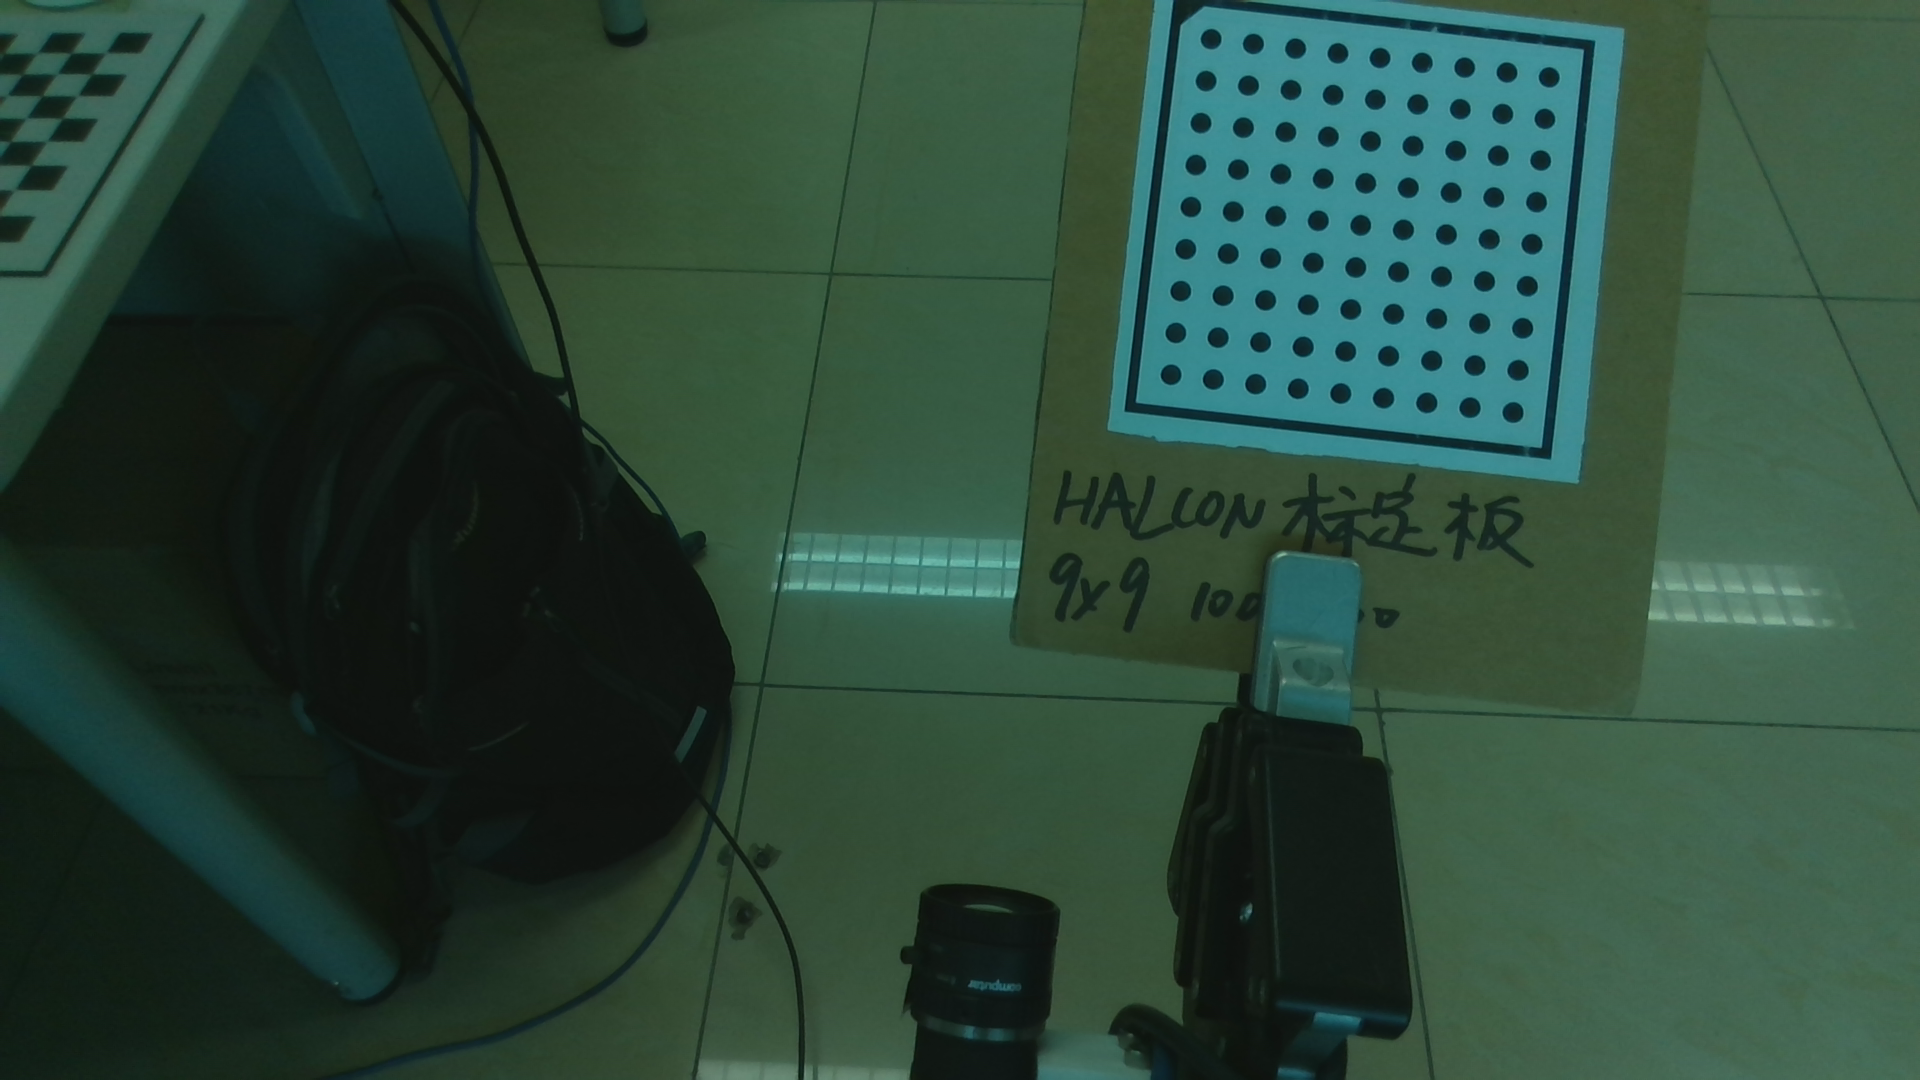 HALCON 标定板
9x9 100
computar